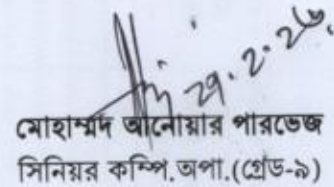 ২৭.২.২৬
মোহাম্মদ আনোয়ার পারভেজ
সিনিয়র কম্পি.অপা.(গ্রেড-৯)